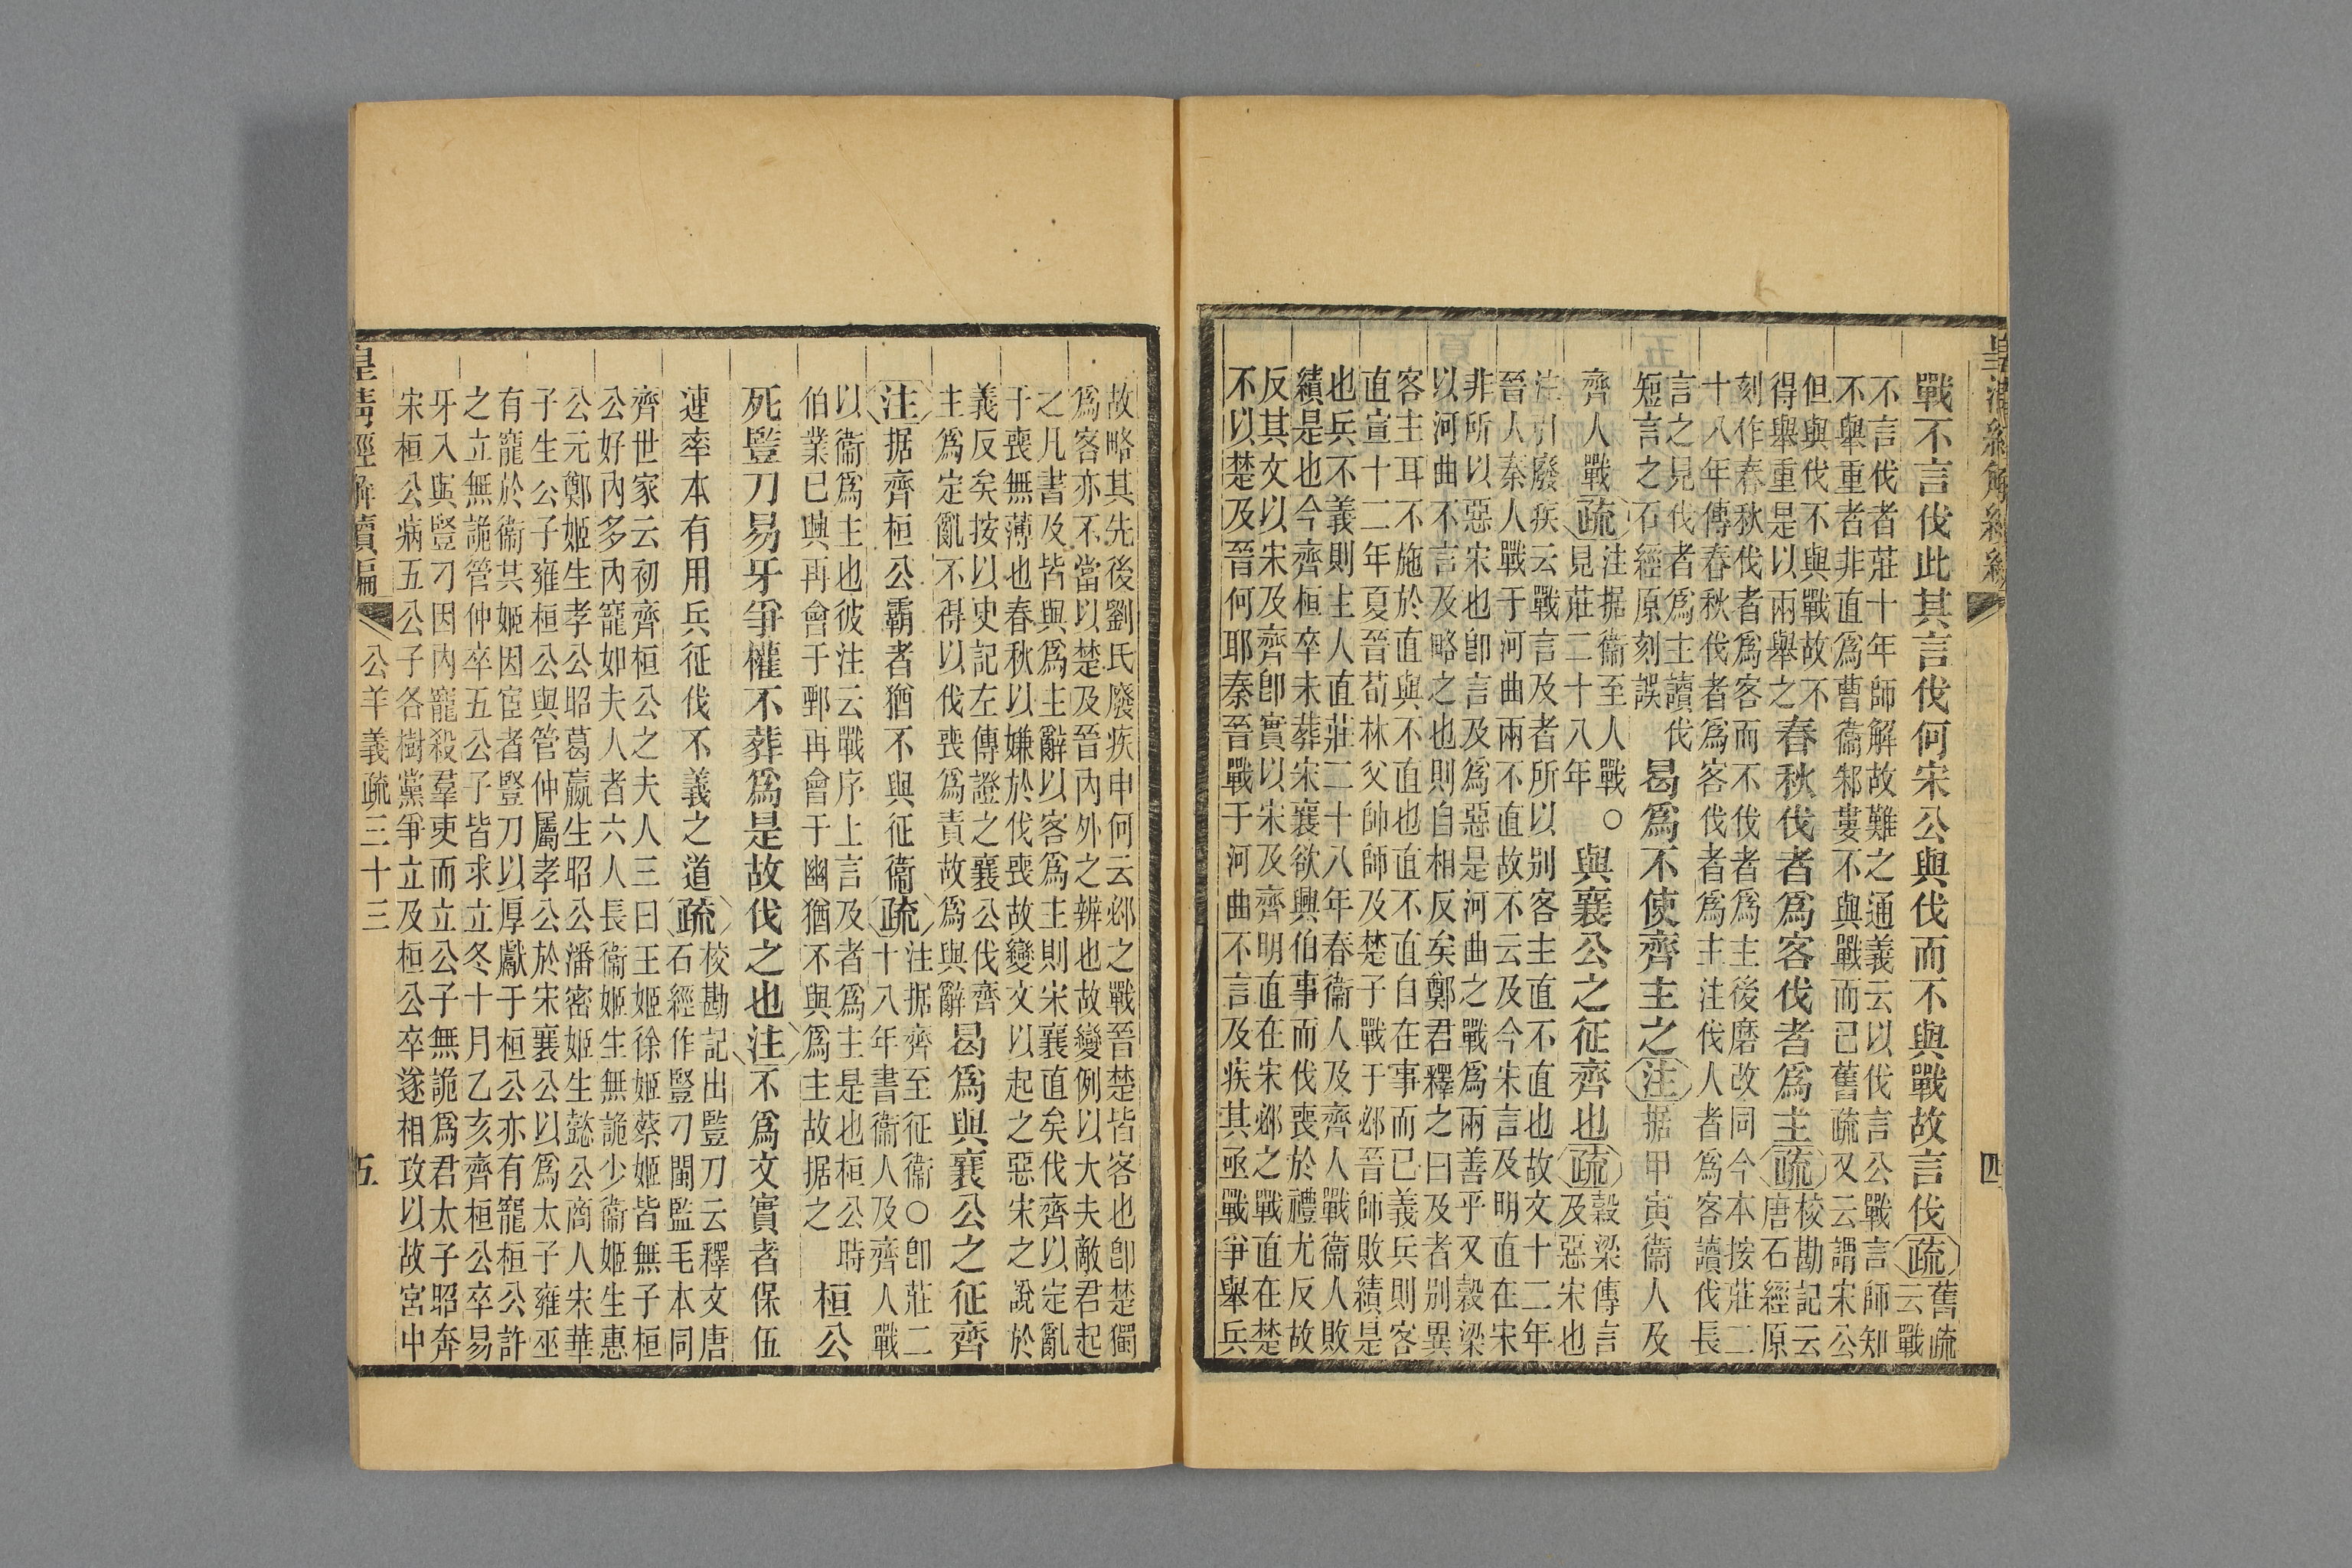 皇清經解續編
四
戰不言伐此其言伐何宋公與伐而不與戰故言伐疏舊疏
云戰
不言伐者莊十年師解故難之通義云以伐言公戰言師知
不舉重者非直爲曹衞邾婁不與戰而已舊疏又云謂宋公
但與伐不與戰故不
得舉重是以兩舉之
春秋伐者爲客伐者爲主疏校勘記云
唐石經原
刻作春秋伐者爲客而不伐者爲主後磨改同今本按莊二
十八年傳春秋伐者爲客伐者爲主注伐人者爲客讀伐長
言之見伐者爲主讀伐
短言之石經原刻誤
曷爲不使齊主之注据甲寅衞人及
齊人戰疏注据衞至人戰○
見莊二十八年
與襄公之征齊也疏穀梁傳言
及惡宋也
注引廢疾云戰言及者所以別客主直不直也故文十二年
晉人秦人戰于河曲兩不直故不云及今宋言及明直在宋
非所以惡宋也卽言及爲惡是河曲之戰爲兩善乎又穀梁
以河曲不言及略之也則自相反矣鄭君釋之曰及者別異
客主耳不施於直與不直也直不直自在事而已義兵則客
直宣十二年夏晉荀林父帥師及楚子戰于邲晉師敗績是
也兵不義則主人直莊二十八年春衞人及齊人戰衞人敗
績是也今齊桓卒未葬宋襄欲興伯事而伐喪於禮尤反故
反其文以宋及齊卽實以宋及齊明直在宋邲之戰直在楚
不以楚及晉何耶秦晉戰于河曲不言及疾其亟戰爭舉兵
故略其先後劉氏廢疾申何云邲之戰晉楚皆客也卽楚獨
爲客亦不當以楚及晉內外之辨也故變例以大夫敵君起
之凡書及皆與爲主辭以客爲主則宋襄直矣伐齊以定亂
于喪無薄也春秋以嫌於伐喪故變文以起之惡宋之說於
義反矣按以史記左傳證之襄公伐齊
主爲定亂不得以伐喪爲責故爲與辭
曷爲與襄公之征齊
注据齊桓公霸者猶不與征衞疏注据齊至征衞○卽莊二
十八年書衞人及齊人戰
以衞爲主也彼注云戰序上言及者爲主是也桓公時
伯業已興再會于鄄再會于幽猶不與爲主故据之
桓公
死豎刀易牙爭權不葬爲是故伐之也注不爲文實者保伍
連率本有用兵征伐不義之道疏校勘記出豎刀云釋文唐
石經作豎刁閩監毛本同
齊世家云初齊桓公之夫人三曰王姬徐姬蔡姬皆無子桓
公好內多內寵如夫人者六人長衞姬生無詭少衞姬生惠
公元鄭姬生孝公昭葛嬴生昭公潘密姬生懿公商人宋華
子生公子雍桓公與管仲屬孝公於宋襄公以爲太子雍巫
有寵於衞共姬因宦者豎刀以厚獻于桓公亦有寵桓公許
之立無詭管仲卒五公子皆求立冬十月乙亥齊桓公卒易
牙入與豎刁因內寵殺羣吏而立公子無詭爲君太子昭奔
宋桓公病五公子各樹黨爭立及桓公卒遂相攻以故宮中
皇清經解續編
公羊義疏三十三
五